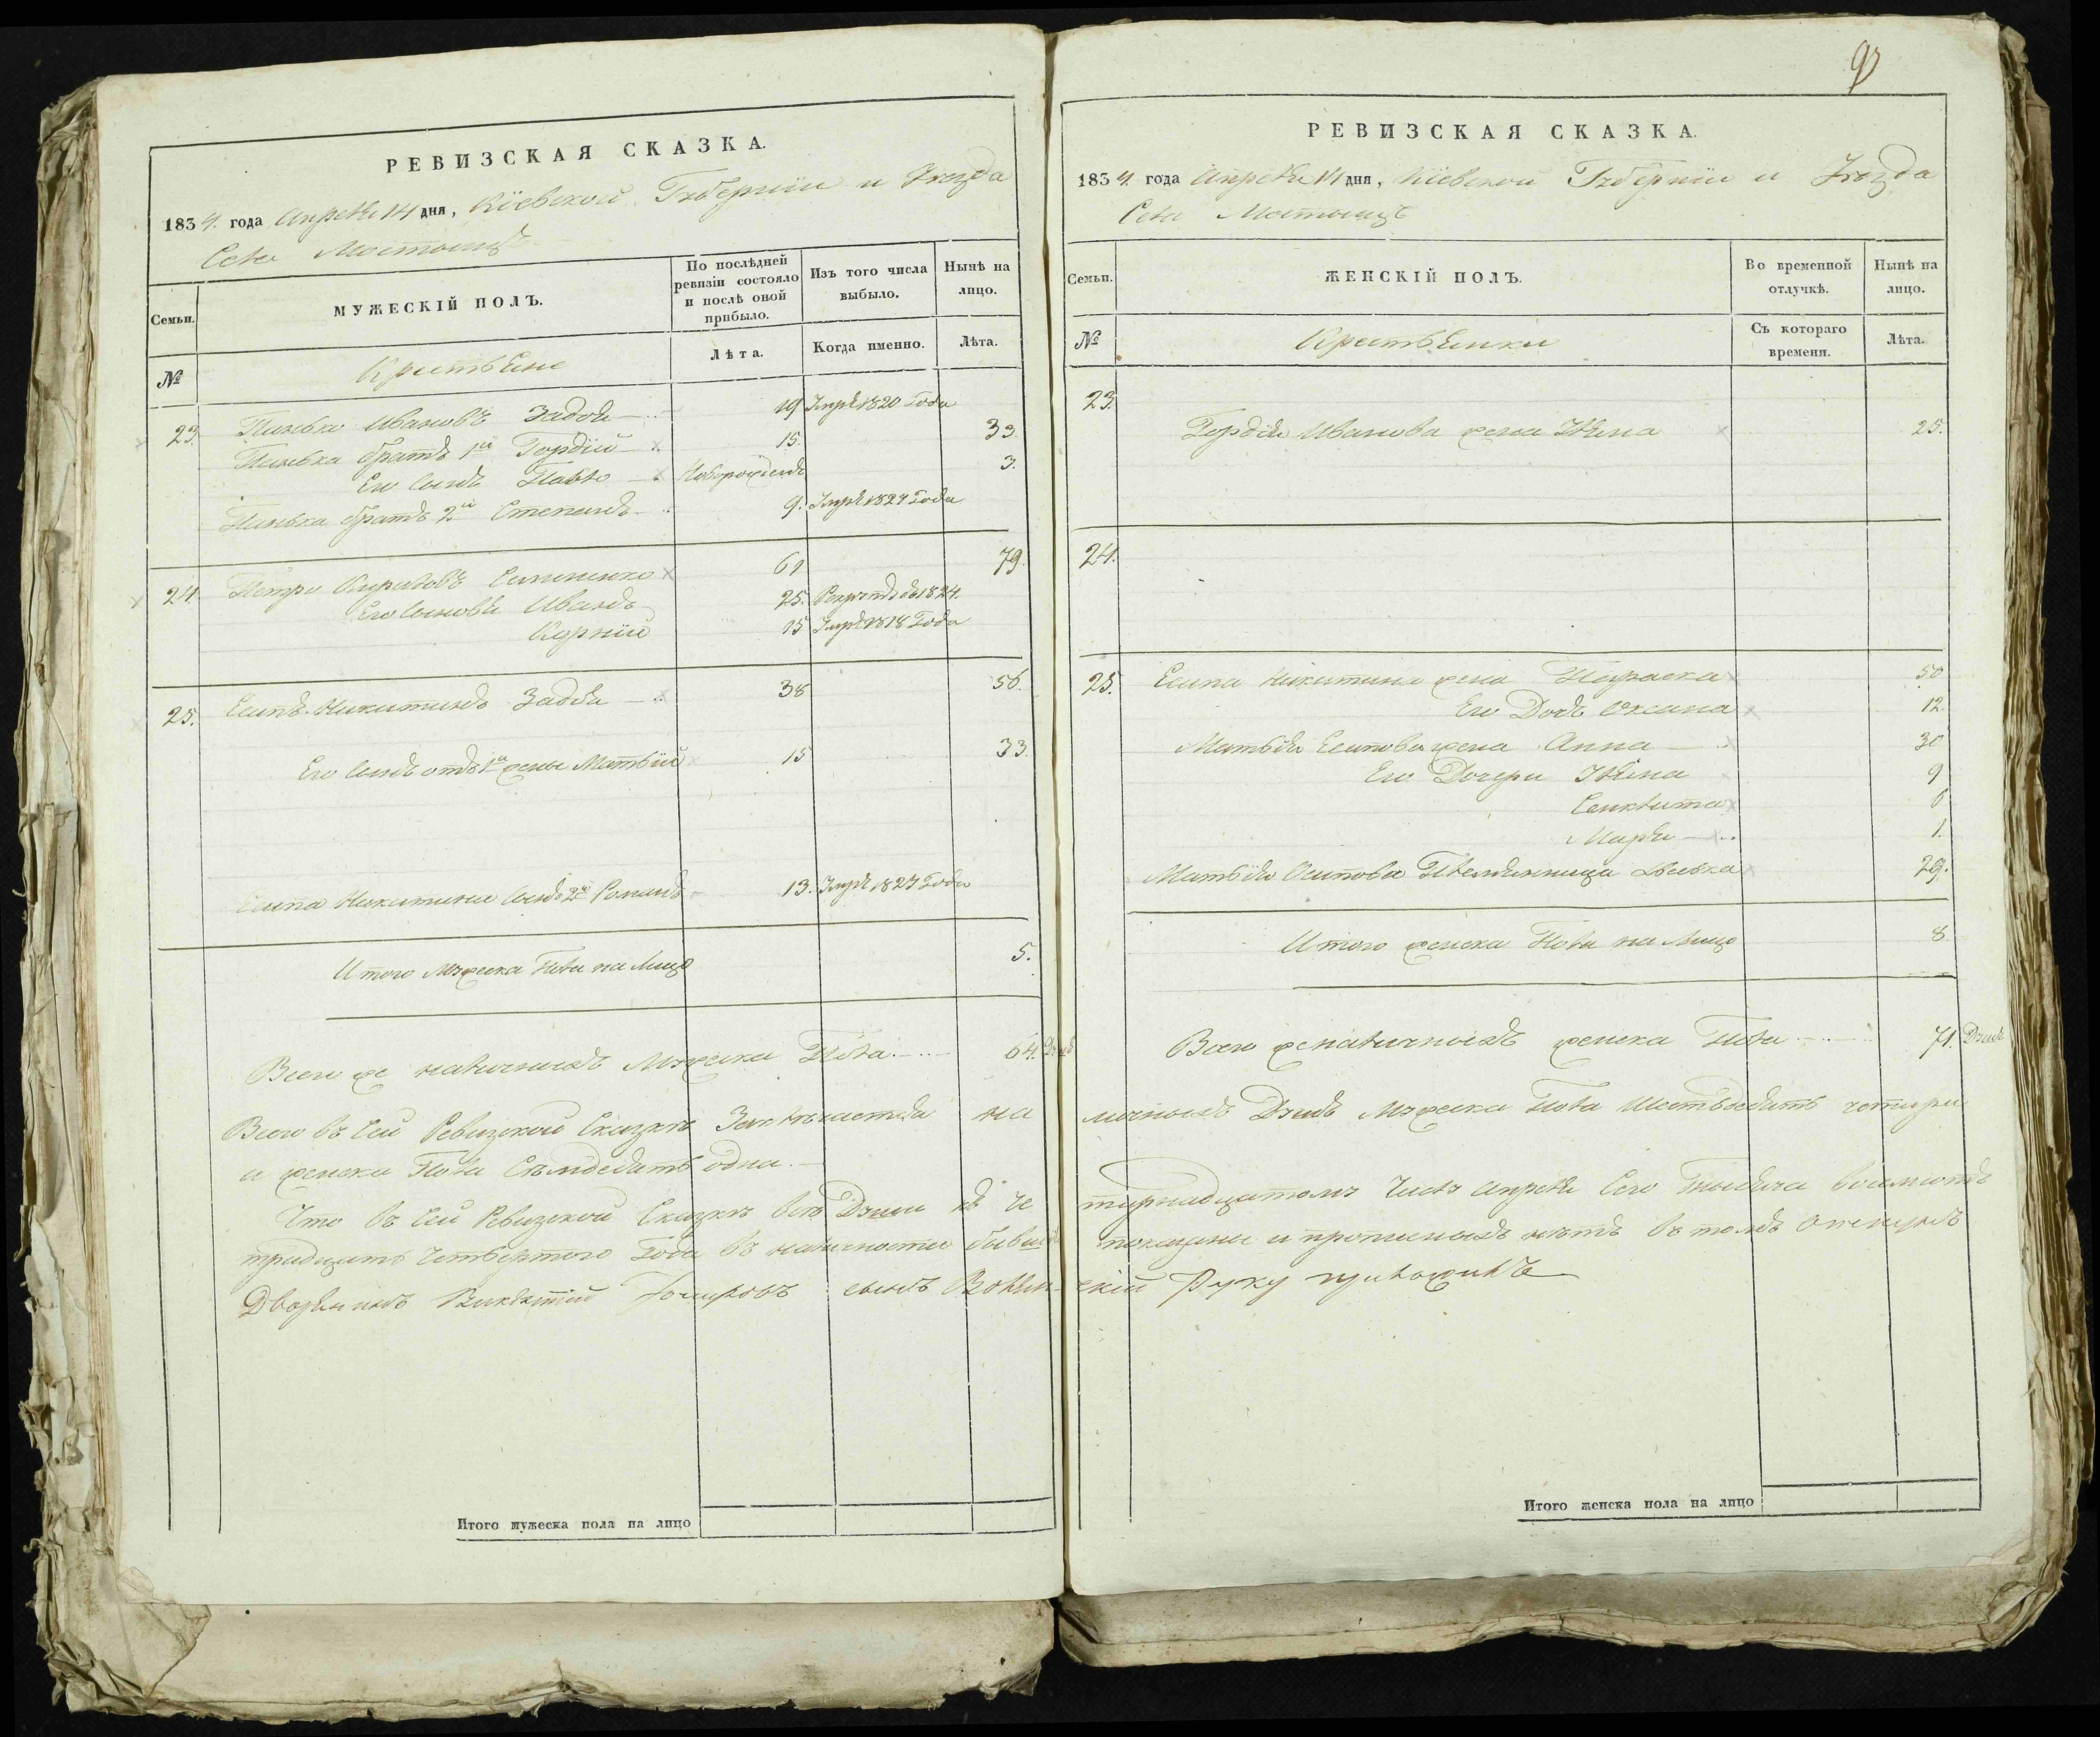 РЕВИЗСКАЯ СКАЗКА.
1834 года Апреля 14 дня, Кіевской Губерніи и Уезда
Села Мостыщъ
Семьи.
МУЖЕСКІЙ ПОЛЪ.
По послѣдней ревизіи состояло и послѣ оной прибыло.
Изъ того числа выбыло.
Нынѣ на лицо.
№
Крестьяне
Лѣта.
Когда именно.
Лѣта.
23. Панько Ивановъ Задоя 19 Умре 1820 Года
Панька братъ 1й Гордій 15. 33.
Его Сынъ Павло Новорожденъ 3.
Панька братъ 2й Степанъ 9. Умре 1827 Года
24. Петро Кириловъ 61 79.
Его Сыновья Иванъ 25. 1824.
Корній 15 Умре 1818 Года
25. Есипъ Никитинъ Задоя 38 56.
Его Сынъ отъ 1й жены Матвій 15 33.
Есипа Никитина Сынъ 2й Романъ 13. Умре 1827 Года
Итого Мужеска Пола на Лицо 5.
Всего же наличныхъ Мужеска Пола 64. Душъ
Всего въ Сей Ревизской Сказке Заключается на
и женска Пола Семдесятъ одна.
Что въ Сей Ревизской Сказке все Души къ че
тридцать Четвертого Года въ наличности бывшія
Дворянинъ Викентій сынъ Волян-
Итого мужеска пола на лицо
РЕВИЗСКАЯ СКАЗКА.
1834 года Апреля 14 дня, Кіевской Губерніи и Уезда
Села Мостыщъ
Семьи.
ЖЕНСКІЙ ПОЛЪ.
Во временной отлучкѣ.
Нынѣ на лицо.
№
Крестьянки
Съ котораго времени.
Лѣта.
23.
Гордія Иванова жена Уляна 25.
24.
25. Есипа Никитина жена Параска 50
Его Дочь Оксана 12.
Матвія Есипова жена Анна 30
Его Дочери Уляна 9
6
Марья 1.
Матвія Осипова Племянница 29.
Итого женска Пола на Лицо 8.
Всего же наличныхъ женска Пола 71. Душъ
личныхъ Душъ Мужеска Пола Шестьдесятъ четыри
тырнадцатому Числу Апреля Сего Тысяча восемсотъ
показаны и прописныхъ нетъ въ томъ
скій Руку приложилъ
Итого женска пола на лицо